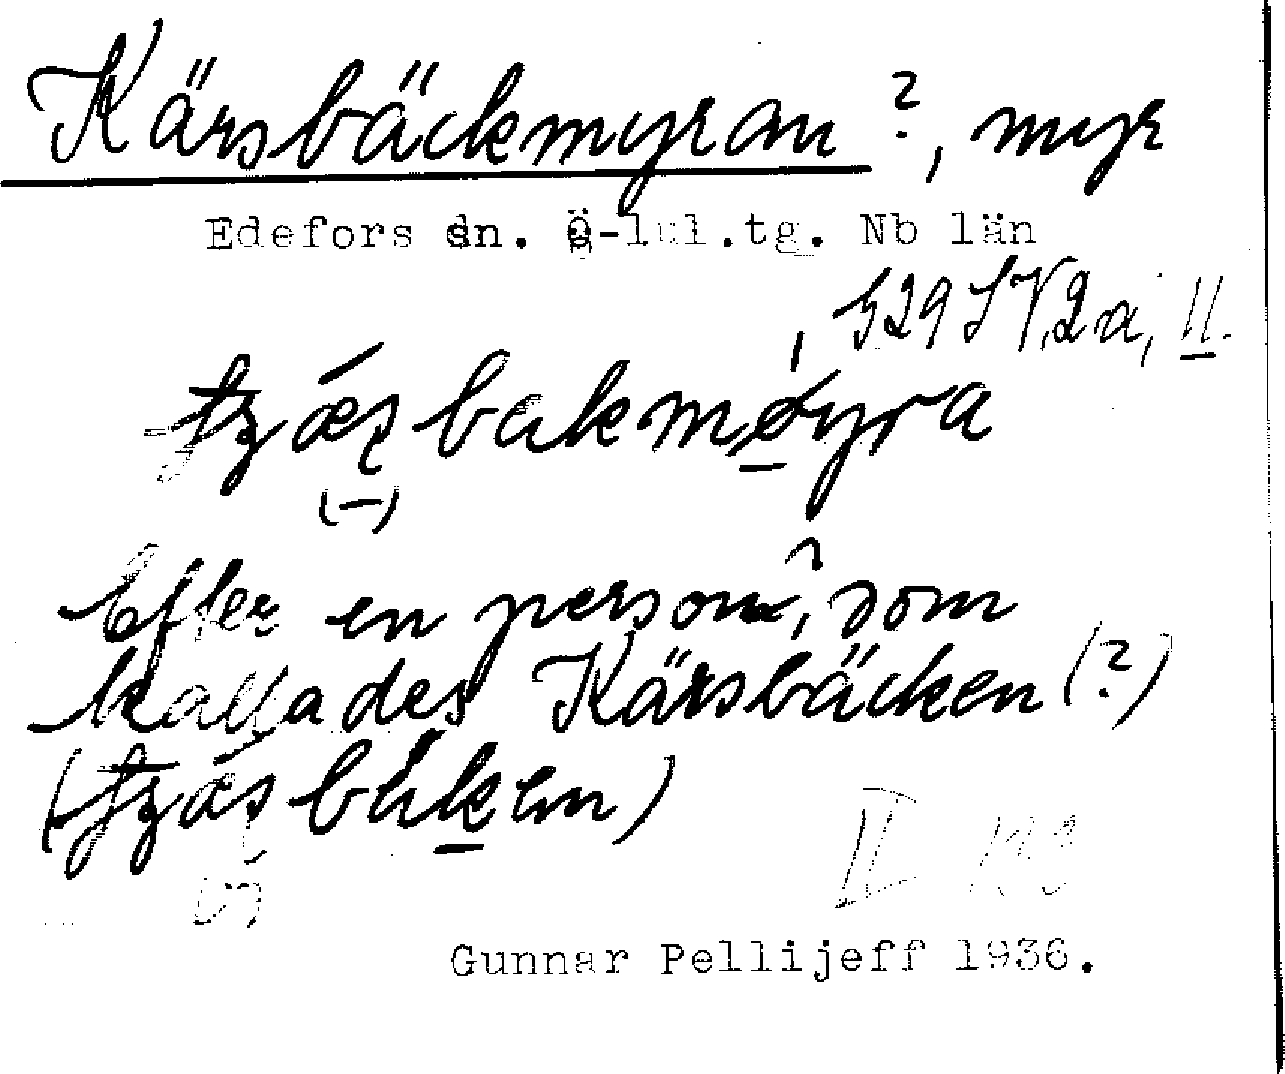 Kärsbäckmyran?, myr
Edefors sn. Ö-lul.tg. Nb län
, 529 SV 2a, II.
Efter en person?, som
kallades Kärsbäcken (?)
II
Gunnar Pellijeff 1936.